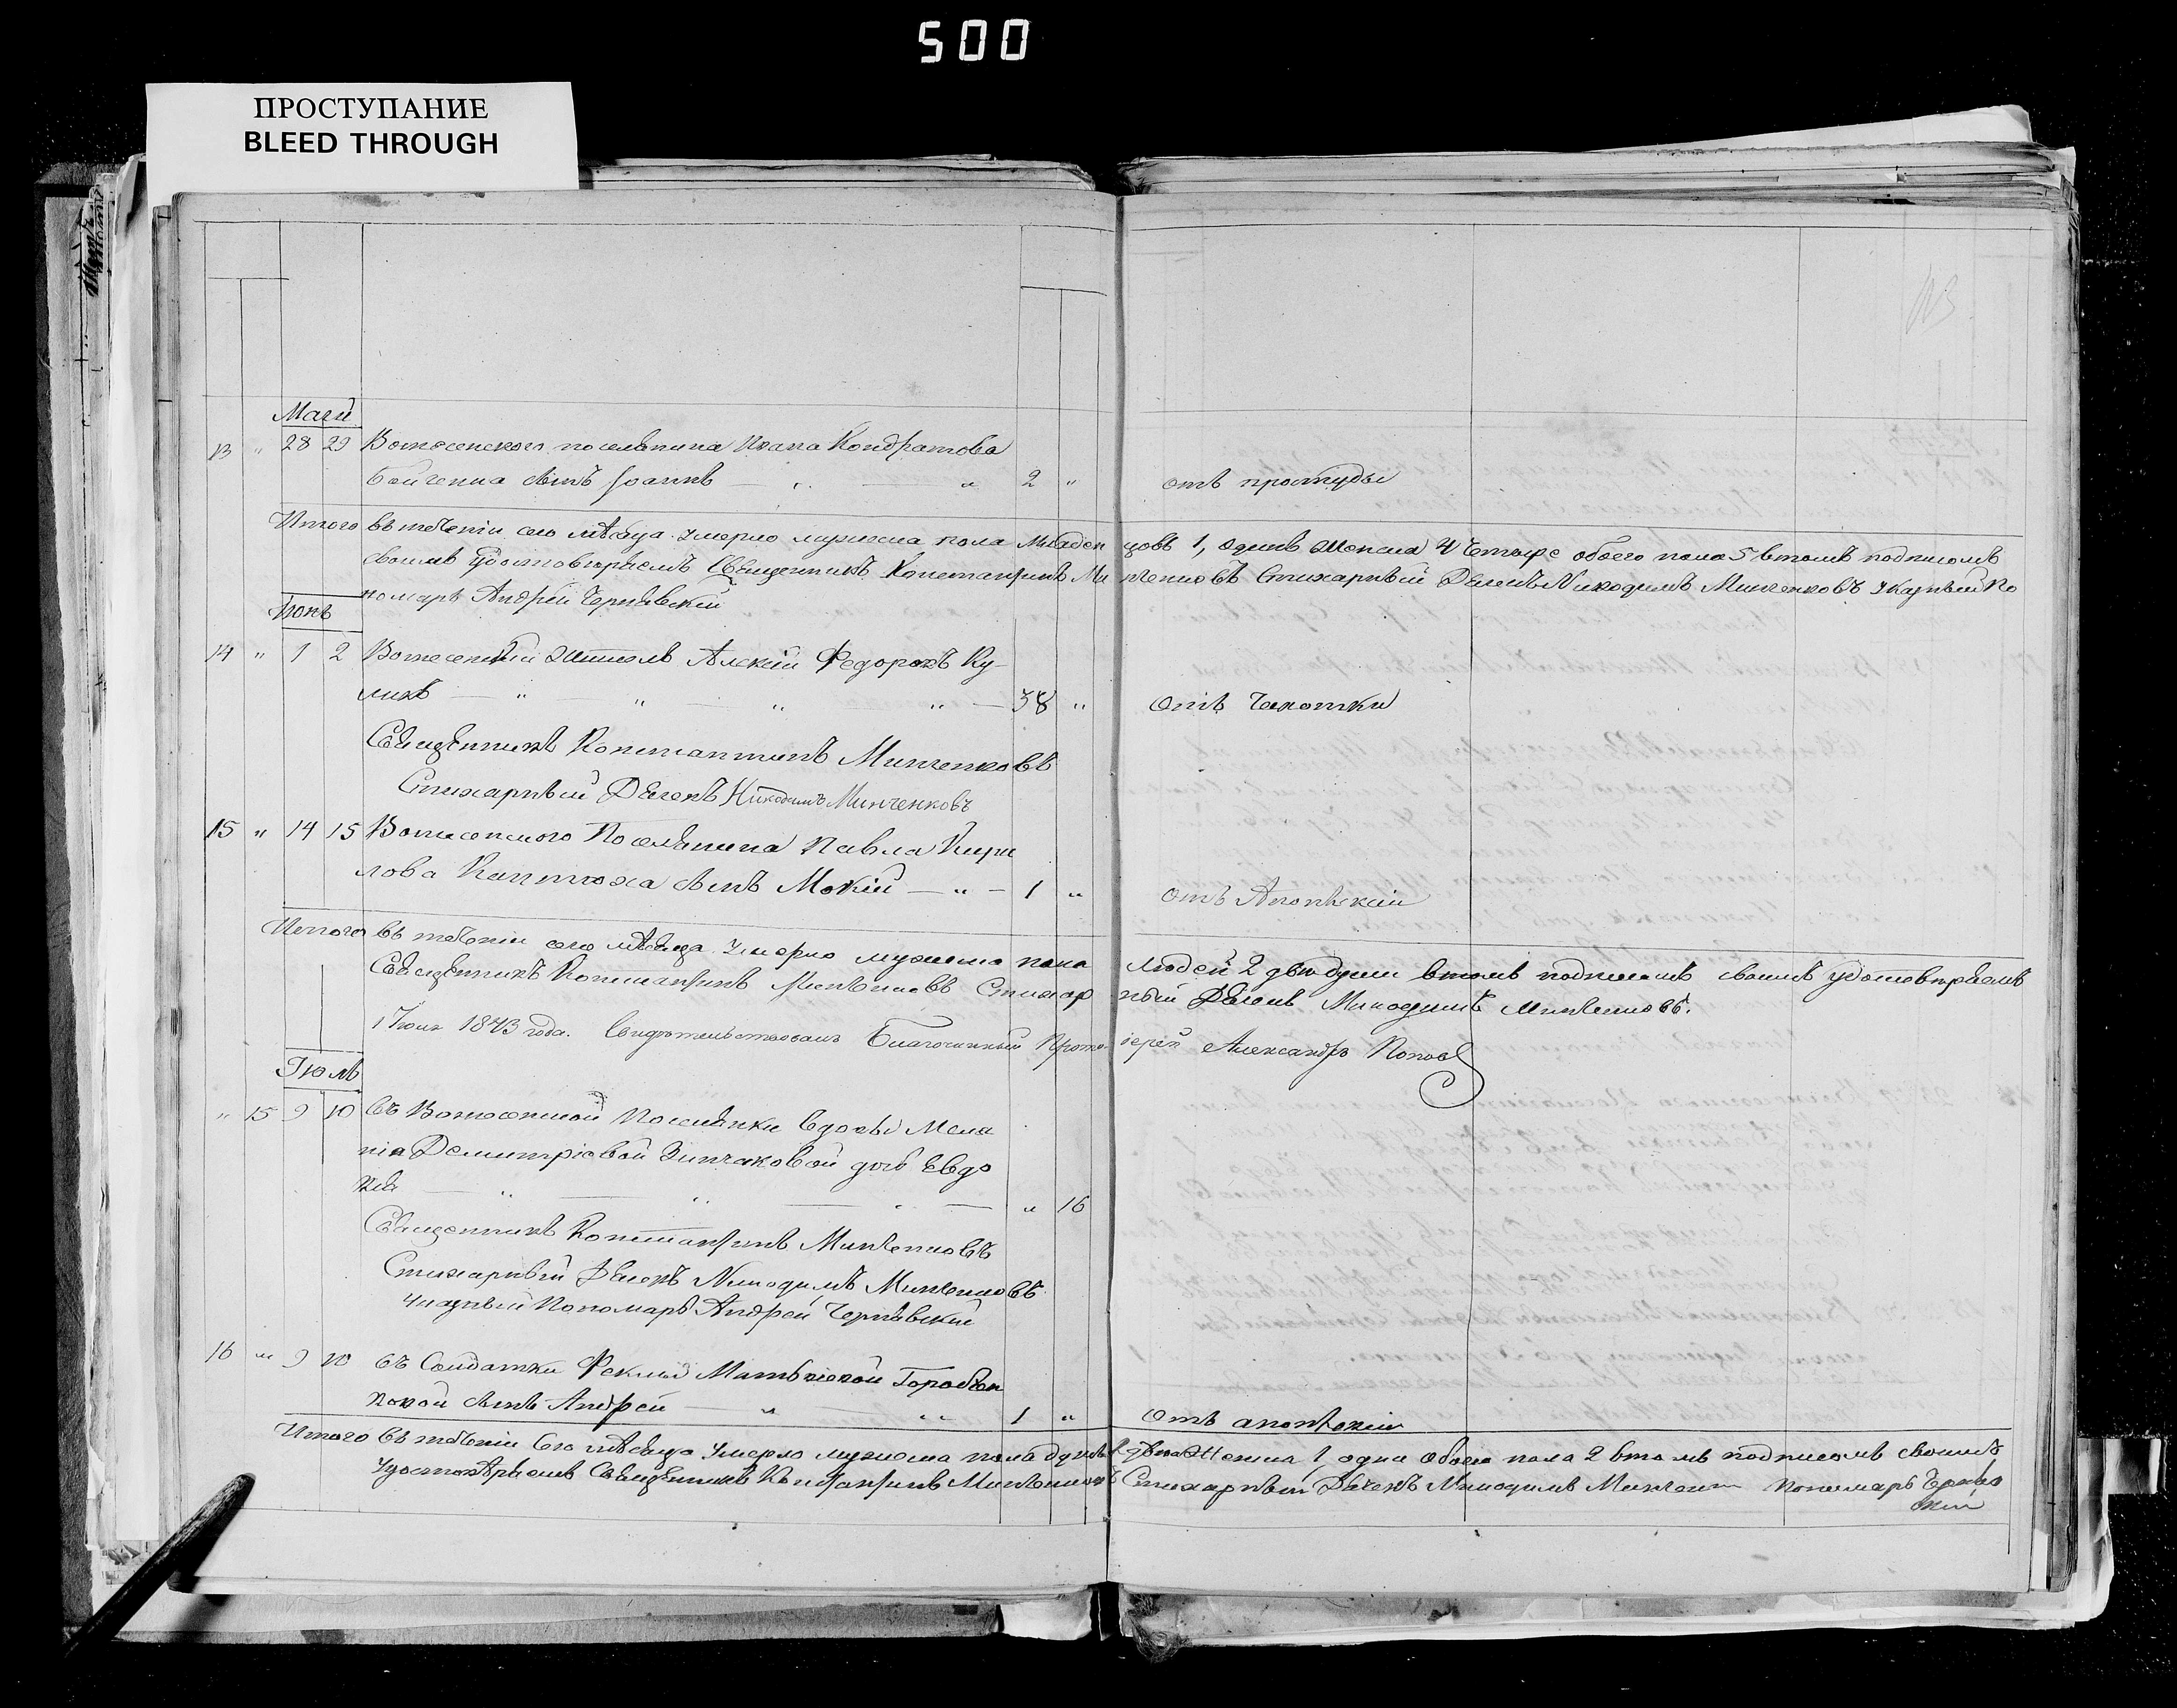 500
ПРОСТУПАНИЕ
BLEED THROUGH
113
Маій
13 " 28 29 Вознесенскаго поселянина Ивана Кондратова
сынъ Іоаннъ — " — " 2 " отъ простуды
Итого въ теченіи сего мѣсяца умерло мужеска пола младенцовъ 1, одинъ женска 4 четыре обоего пола 5 в томъ подписомъ
своимъ удостовѣряемъ Священникъ Константинъ Минченковъ Стихарный Дьячекъ Никодимъ Минченковъ Указный По
номарь Андрей Чернявскій
Іюнь
14 " 1 2 Вознесенскій житель Алексій Федоровъ Ку-
ликъ — " " " " — 38 " отъ Чахотки
Священникъ Константинъ Минченковъ
Стихарный Дьячекъ Никодимъ Минченковъ
15 " 14 15 Вознесенскаго Поселянина Павла Кири
лова сынъ Мокій — " — 1 " отъ Апоплексіи
Итого въ теченіи сего мѣсяца умерло мужеска пола людей 2 двѣ души в томъ подписомъ своимъ удостовѣряемъ
Священникъ Константинъ Минченковъ Стихарный Дьячекъ Никодимъ Минченковъ.
1 Іюля 1843 года. Свидѣтельствовалъ Благочинный Протоіерей Александръ Поповъ
Іюль
" 15 9 10 Въ Вознесенской Поселянки вдовы Мела
ніи Демитріевой дочь Евдо
кія — " — " — " — " 16
Священникъ Константинъ Минченковъ
Стихарный Дьячекъ Никодимъ Минченковъ
Указный Пономарь Андрей Чернявскій
16 " 9 10 въ Солдатки Феклы Матвѣевой
сынъ Андрей — " " 1 " отъ апоплексіи
Итого въ теченіи сего мѣсяца умерло мужеска пола женска 1, одна обоего пола 2 в томъ подписомъ своимъ
удостовѣряемъ Священникъ Константинъ Минченковъ Стихарный Дьячекъ Никодимъ Пономарь Черняв
скій